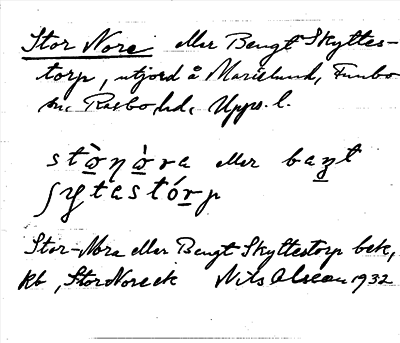 Stor Nore eller Bengt Skyttes-
torp, utjord å Marielund, Funbo
sn. Rasbo hd, Upps. l.
stò̱ŋò̱ra eller baṉt
ʃytastó̱rp
Stor-Nora eller Bengt Skyttestorp bek,
Rb, Stor Nore ek Nils Olsson 1932